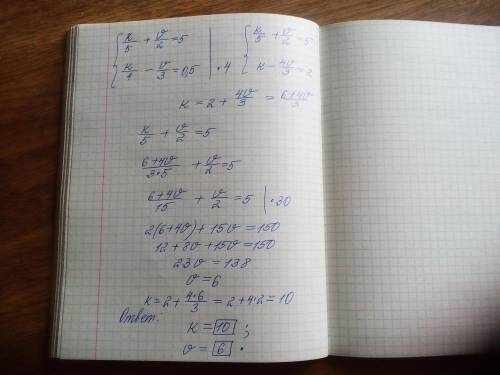 { к/5 + v/2 = 5 { к/5 + v/2 = 5
{ к/4 − v/3 = 0,5 | ·4 { к − 4v/3 = 2
к = 2 + 4v/3 = (6+4v)/3
к/5 + v/2 = 5
(6+4v)/(3·5) + v/2 = 5
(6+4v)/15 + v/2 = 5 | ·30
2(6+4v) + 15v = 150
12 + 8v + 15v = 150
23v = 138
v = 6
к = 2 + (4·6)/3 = 2 + 4·2 = 10
Ответ:
к = 10 ;
v = 6 .